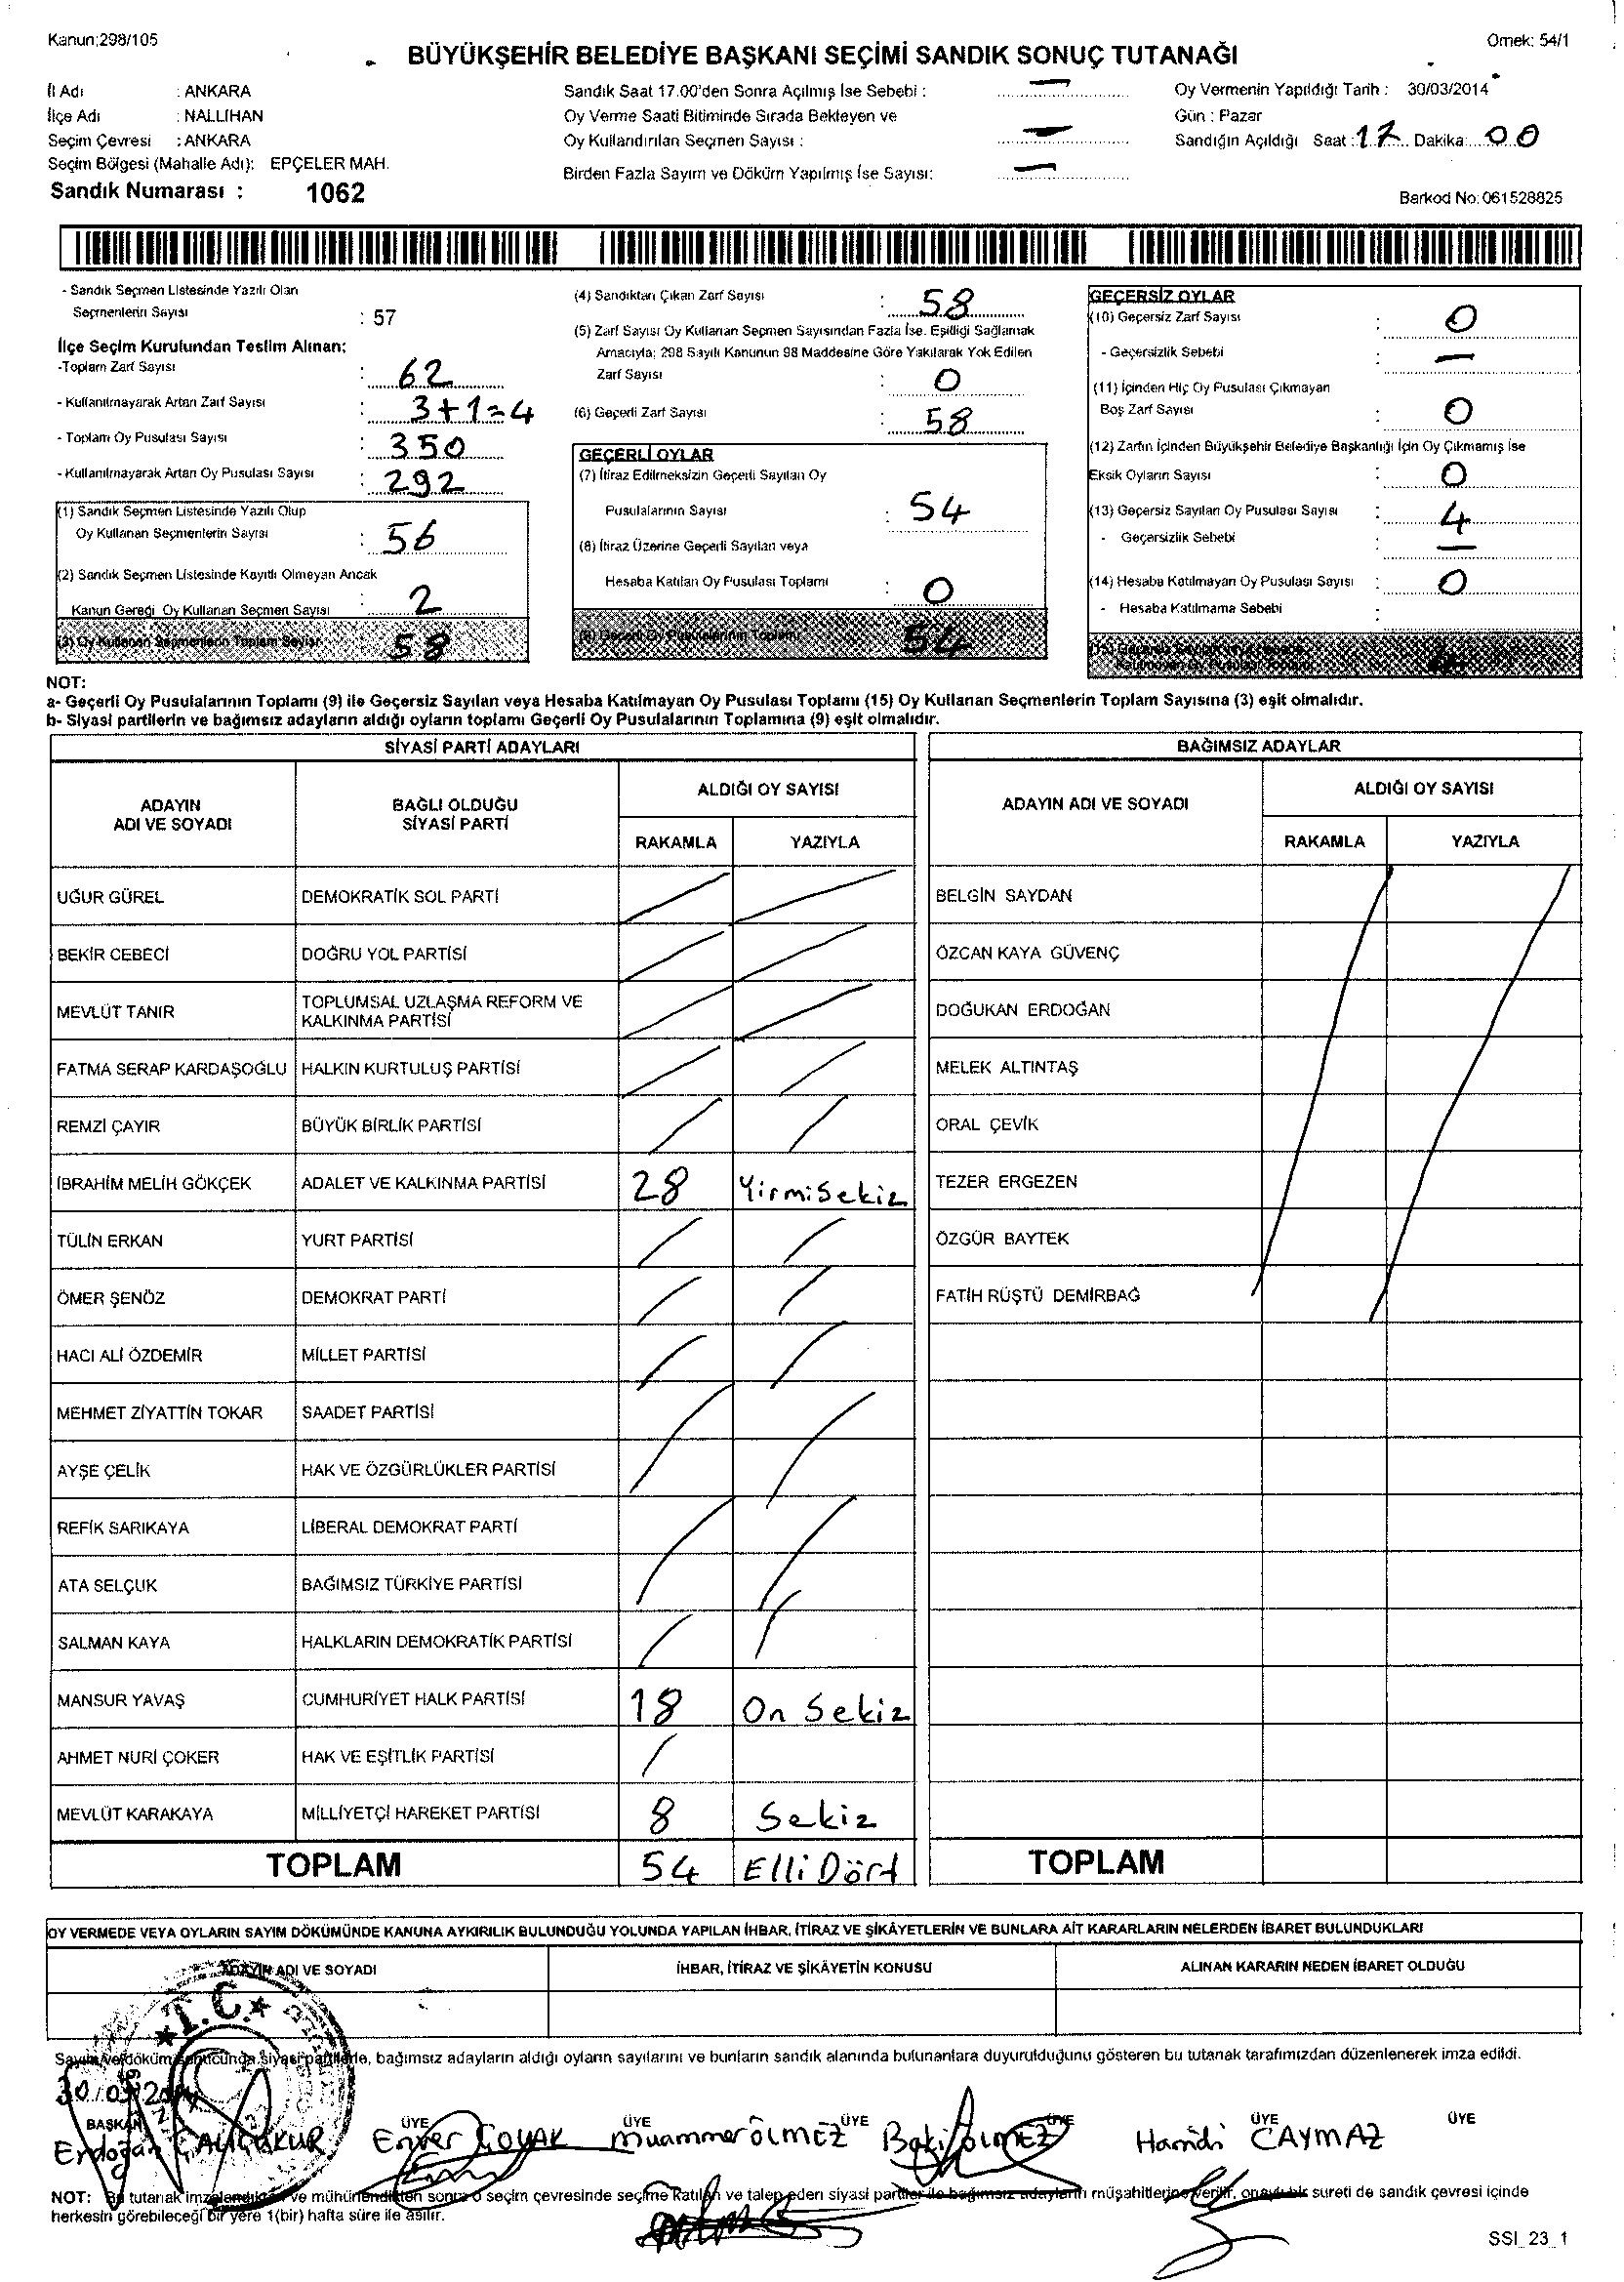 Kanun:298/105
Örnek: 54/1
BÜYÜKŞEHİR BELEDİYE BAŞKANI SEÇİMİ SANDIK SONUÇ TUTANAĞI
İl Adı : ANKARA
İlçe Adı : NALLIHAN
Seçim Çevresi : ANKARA
Seçim Bölgesi (Mahalle Adı): EPÇELER MAH.
Sandık Numarası : 1062
Sandık Saat 17.00'den Sonra Açılmış İse Sebebi : —
Oy Verme Saati Bitiminde Sırada Bekleyen ve
Oy Kullandırılan Seçmen Sayısı : —
Birden Fazla Sayım ve Döküm Yapılmış İse Sayısı: —
Oy Vermenin Yapıldığı Tarih : 30/03/2014
Gün : Pazar
Sandığın Açıldığı Saat : 17 Dakika: 00
Barkod No: 061528825
- Sandık Seçmen Listesinde Yazılı Olan
Seçmenlerin Sayısı : 57
İlçe Seçim Kurulundan Teslim Alınan:
-Toplam Zarf Sayısı : 62
- Kullanılmayarak Artan Zarf Sayısı : 3+1=4
- Toplam Oy Pusulası Sayısı : 350
- Kullanılmayarak Artan Oy Pusulası Sayısı : 292
(1) Sandık Seçmen Listesinde Yazılı Olup
Oy Kullanan Seçmenlerin Sayısı : 56
(2) Sandık Seçmen Listesinde Kayıtlı Olmayan Ancak
Kanun Gereği Oy Kullanan Seçmen Sayısı : 2
(3) Oy Kullanan Seçmenlerin Toplam Sayısı 58
(4) Sandıktan Çıkan Zarf Sayısı : 58
(5) Zarf Sayısı Oy Kullanan Seçmen Sayısından Fazla İse. Eşitliği Sağlamak
Amacıyla; 298 Sayılı Kanunun 98 Maddesine Göre Yakılarak Yok Edilen
Zarf Sayısı : 0
(6) Geçerli Zarf Sayısı : 58
GEÇERLİ OYLAR
(7) İtiraz Edilmeksizin Geçerli Sayılan Oy
Pusulalarının Sayısı : 54
(8) İtiraz Üzerine Geçerli Sayılan veya
Hesaba Katılan Oy Pusulası Toplamı : 0
(9) Geçerli Oy Pusulalarının Toplamı 54
GEÇERSİZ OYLAR
(10) Geçersiz Zarf Sayısı : 0
- Geçersizlik Sebebi : —
(11) İçinden Hiç Oy Pusulası Çıkmayan
Boş Zarf Sayısı : 0
(12) Zarfın İçinden Büyükşehir Belediye Başkanlığı İçin Oy Çıkmamış İse
Eksik Oyların Sayısı : 0
(13) Geçersiz Sayılan Oy Pusulası Sayısı : 4
- Geçersizlik Sebebi : —
(14) Hesaba Katılmayan Oy Pusulası Sayısı : 0
- Hesaba Katılmama Sebebi :
(15) Geçersiz Sayılan veya Hesaba
Katılmayan Oy Pusulası Toplamı
NOT:
a- Geçerli Oy Pusulalarının Toplamı (9) ile Geçersiz Sayılan veya Hesaba Katılmayan Oy Pusulası Toplamı (15) Oy Kullanan Seçmenlerin Toplam Sayısına (3) eşit olmalıdır.
b- Siyasi partilerin ve bağımsız adayların aldığı oyların toplamı Geçerli Oy Pusulalarının Toplamına (9) eşit olmalıdır.
SİYASİ PARTİ ADAYLARI
ADAYIN ADI VE SOYADI
BAĞLI OLDUĞU SİYASİ PARTİ
ALDIĞI OY SAYISI
RAKAMLA YAZIYLA
UĞUR GÜREL DEMOKRATİK SOL PARTİ
BEKİR CEBECİ DOĞRU YOL PARTİSİ
MEVLÜT TANIR TOPLUMSAL UZLAŞMA REFORM VE
KALKINMA PARTİSİ
FATMA SERAP KARDAŞOĞLU HALKIN KURTULUŞ PARTİSİ
REMZİ ÇAYIR BÜYÜK BİRLİK PARTİSİ
İBRAHİM MELİH GÖKÇEK ADALET VE KALKINMA PARTİSİ 28 YirmiSekiz
TÜLİN ERKAN YURT PARTİSİ
ÖMER ŞENÖZ DEMOKRAT PARTİ
HACI ALİ ÖZDEMİR MİLLET PARTİSİ
MEHMET ZİYATTİN TOKAR SAADET PARTİSİ
AYŞE ÇELİK HAK VE ÖZGÜRLÜKLER PARTİSİ
REFİK SARIKAYA LİBERAL DEMOKRAT PARTİ
ATA SELÇUK BAĞIMSIZ TÜRKİYE PARTİSİ
SALMAN KAYA HALKLARIN DEMOKRATİK PARTİSİ
MANSUR YAVAŞ CUMHURİYET HALK PARTİSİ 18 On Sekiz
AHMET NURİ ÇOKER HAK VE EŞİTLİK PARTİSİ
MEVLÜT KARAKAYA MİLLİYETÇİ HAREKET PARTİSİ 8 Sekiz
TOPLAM 54 Elli Dört
BAĞIMSIZ ADAYLAR
ADAYIN ADI VE SOYADI
ALDIĞI OY SAYISI
RAKAMLA YAZIYLA
BELGİN SAYDAN
ÖZCAN KAYA GÜVENÇ
DOĞUKAN ERDOĞAN
MELEK ALTINTAŞ
ORAL ÇEVİK
TEZER ERGEZEN
ÖZGÜR BAYTEK
FATİH RÜŞTÜ DEMİRBAĞ
TOPLAM
OY VERMEDE VEYA OYLARIN SAYIM DÖKÜMÜNDE KANUNA AYKIRILIK BULUNDUĞU YOLUNDA YAPILAN İHBAR, İTİRAZ VE ŞİKÂYETLERİN VE BUNLARA AİT KARARLARIN NELERDEN İBARET BULUNDUKLARI
ADAYIN ADI VE SOYADI
İHBAR, İTİRAZ VE ŞİKÂYETİN KONUSU
ALINAN KARARIN NEDEN İBARET OLDUĞU
T.C.
Sayım ve döküm sonucunda siyasi partilerle, bağımsız adayların aldığı oyların sayılarını ve bunların sandık alanında bulunanlara duyurulduğunu gösteren bu tutanak tarafımızdan düzenlenerek imza edildi.
30/03/2014
BAŞKAN ÜYE ÜYE ÜYE ÜYE ÜYE ÜYE
Erdoğan Enver Muammer ÖLMEZ Baki ÖLMEZ Hamdi CAYMAZ
NOT: Bu tutanak imzalandıktan ve mühürlendikten sonra o seçim çevresinde seçime katılan ve talep eden siyasi partiler ile bağımsız adayların müşahitlerine verilir, onaylı bir sureti de sandık çevresi içinde
herkesin görebileceği bir yere 1(bir) hafta süre ile asılır.
SSI_23_1